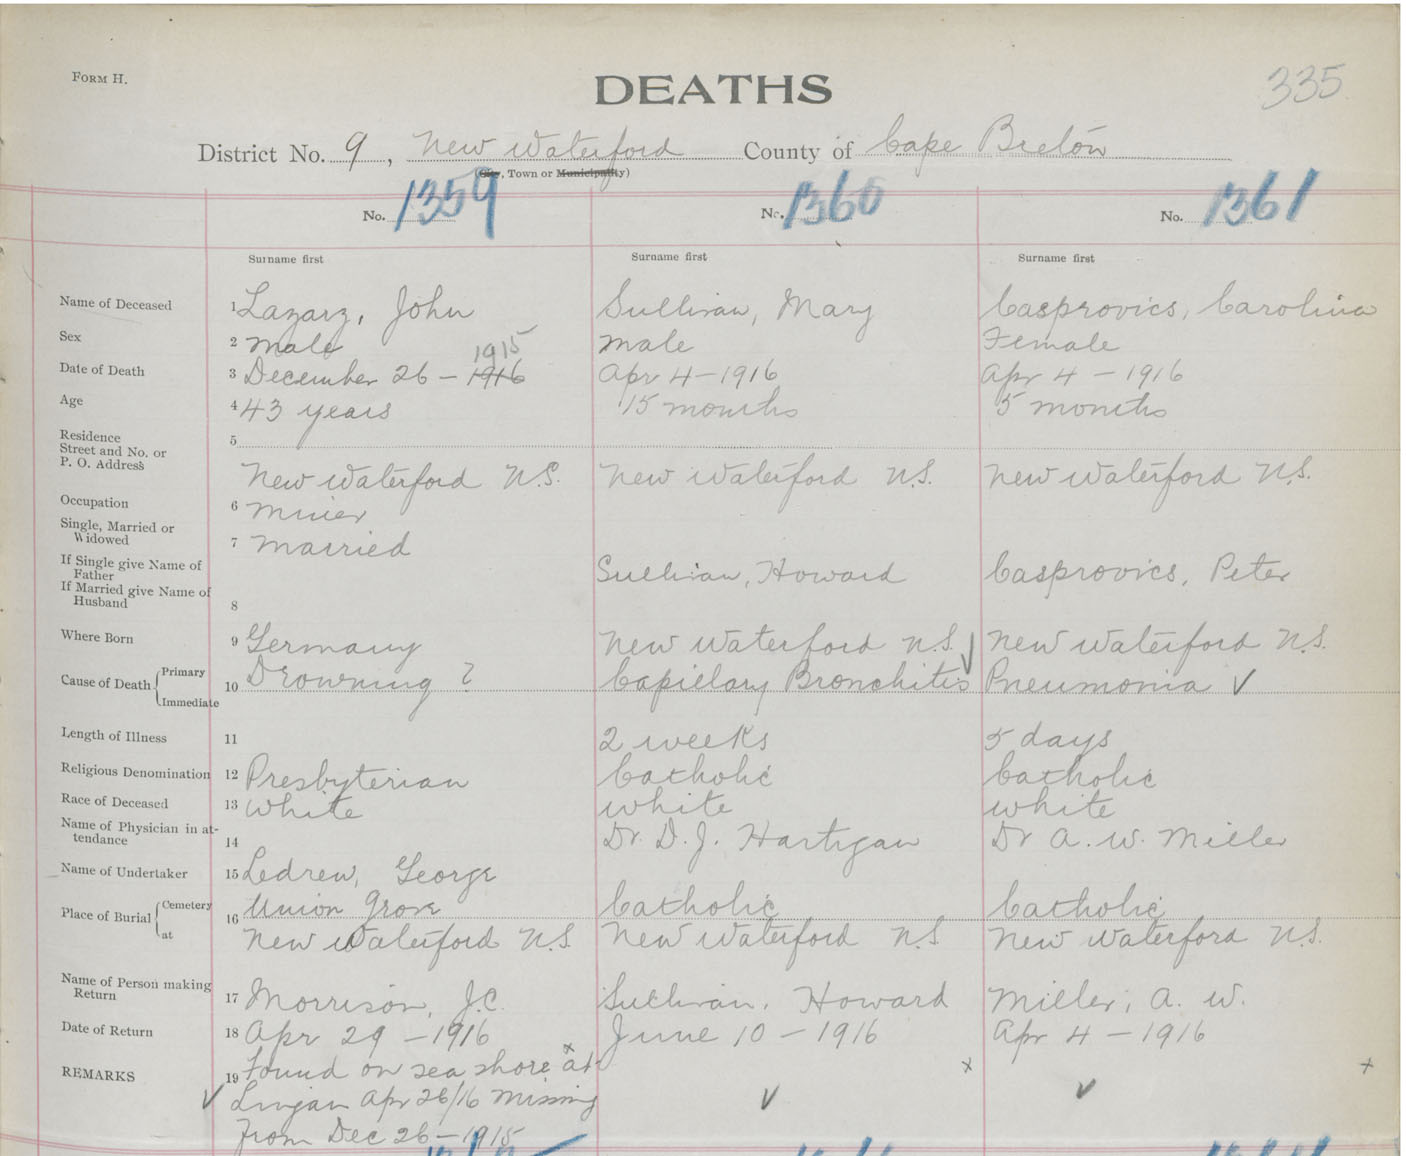 FORM H.
DEATHS
335
District No. 9, New Waterford County of Cape Breton
(City, Town or Municipality)
No. 1359 No. 1360 No. 1361
Surname first Surname first Surname first
Name of Deceased 1 Lazarz, John Sullivan, Mary Casprovics, Carolina
Sex 2 male male Female
1915
Date of Death 3 December 26 - 1916 Apr 4 - 1916 Apr 4 - 1916
Age 4 43 years 15 months 5 months
Residence
Street and No. or 5
P. O. Address
New Waterford N.S. New Waterford N.S. New Waterford N.S.
Occupation 6 miner
Single, Married or
Widowed 7 married
If Single give Name of
Father Sullivan, Howard Casprovics, Peter
If Married give Name of
Husband 8
Where Born 9 Germany New Waterford N.S. New Waterford N.S.
Cause of Death Primary 10 Drowning ? Capielary Bronchitis Pneumonia
Immediate
Length of Illness 11 2 weeks 5 days
Religious Denomination 12 Presbyterian Catholic Catholic
Race of Deceased 13 white white white
Name of Physician in at-
tendance 14 Dr. D. J. Hartigan Dr A. W. Miller
Name of Undertaker 15 Ledrew, George
Place of Burial Cemetery 16 Union Grove Catholic Catholic
at New Waterford N.S. New Waterford N.S New Waterford N.S.
Name of Person making
Return 17 Morrison, J.C. Sullivan, Howard Miller, A. W.
Date of Return 18 Apr 29 - 1916 June 10 - 1916 Apr 4 - 1916
REMARKS 19 Found on sea shore at
Lingan Apr 26/16 missing
from Dec 26 - 1915